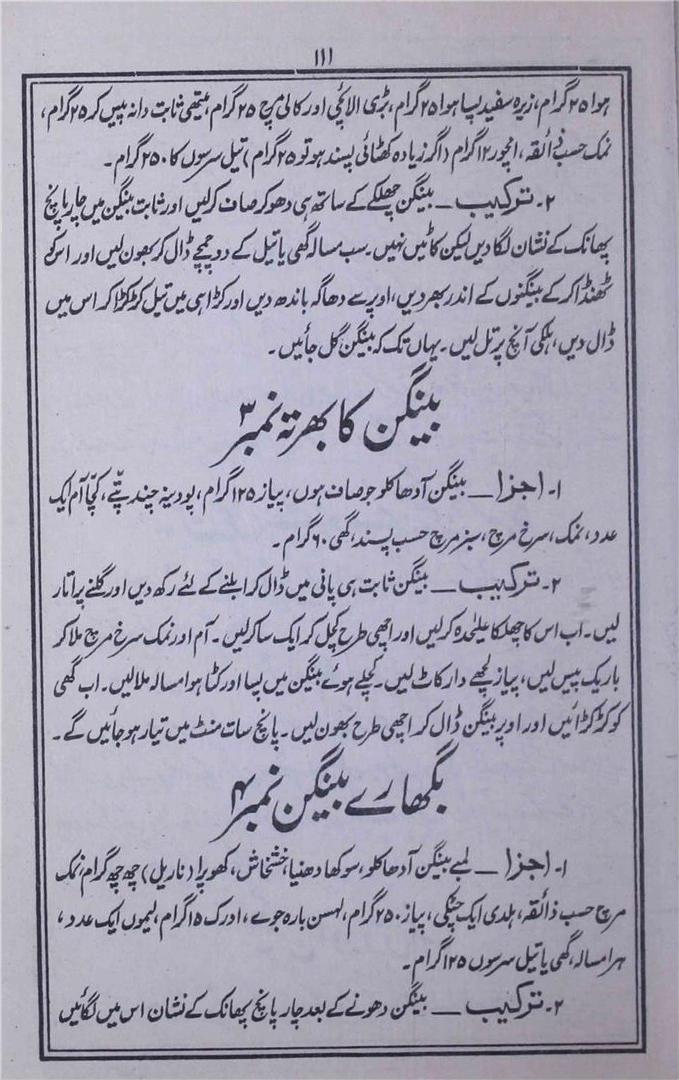 ۱۱۱
ہوا ۲۵ گرام، زیرہ سفید پسا ہوا ۲۵ گرام، بڑی الائچی اور کالی مرچ ۲۵ گرام، میتھی ثابت دانہ پیس کر ۲۵ گرام،
نمک حسب ذائقہ، امچور ۱۲ گرام (اگر زیادہ کھٹائی پسند ہو تو ۲۵ گرام) تیل سرسوں کا ۲۵۰ گرام۔
۲۔ ترکیب __ بینگن چھلکے کے ساتھ ہی دھو کر صاف کرلیں اور ثابت بینگن میں چار پانچ
پھانک کے نشان لگا دیں لیکن کاٹیں نہیں۔ سب مسالہ گھی یا تیل کے دو چمچے ڈال کر بھون لیں اور اس کو
ٹھنڈا کر کے بینگنوں کے اندر بھر دیں، اوپر سے دھاگہ باندھ دیں اور کڑاہی میں تیل کڑکڑا کر اس میں
ڈال دیں، ہلکی آنچ پر تل لیں۔ یہاں تک کہ بینگن گل جائیں۔
بینگن کا بھرتہ نمبر ۳
۱۔ اجزا __ بینگن آدھا کلو جو صاف ہوں، پیاز ۱۲۵ گرام، پودینہ چند پتّے، کچّا آم ایک
عدد، نمک، سرخ مرچ، سبز مرچ حسب پسند، گھی ۶۰ گرام۔
۲۔ ترکیب __ بینگن ثابت ہی پانی میں ڈال کر ابلنے کے لئے رکھ دیں اور گلنے پر اتار
لیں۔ اب اس کا چھلکا علیٰحدہ کرلیں اور اچھی طرح کچل کر ایک سا کرلیں۔ آم اور نمک سرخ مرچ ملا کر
باریک پیس لیں، پیاز لچھے دار کاٹ لیں۔ کچلے ہوئے بینگن میں پسا اور کٹا ہوا مسالہ ملا لیں۔ اب گھی
کو کڑکڑائیں اور اوپر بینگن ڈال کر اچھی طرح بھون لیں۔ پانچ سات منٹ میں تیار ہو جائیں گے۔
بگھارے بینگن نمبر ۴
۱۔ اجزا __ لمبے بینگن آدھا کلو، سوکھا دھنیا، خشخاش، کھوپرا (ناریل) چھ چھ گرام، نمک
مرچ حسب ذائقہ، ہلدی ایک چٹکی، پیاز ۲۵۰ گرام، لہسن بارہ جوے، ادرک ۱۵ گرام، لیموں ایک عدد،
ہرا مسالہ، گھی یا تیل سرسوں ۱۲۵ گرام۔
۲۔ ترکیب __ بینگن دھونے کے بعد چار پانچ پھانک کے نشان اس میں لگائیں